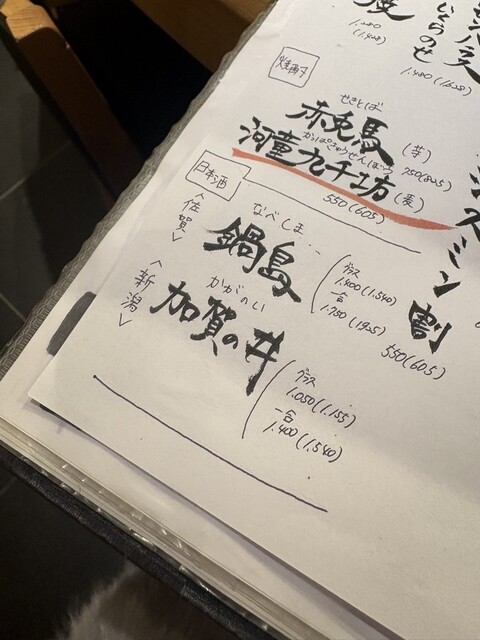 いくらのせ
1.480(1.628)
焼酎
せきとば
赤兎馬(芋)
750(825)
かっぱきゅうせんぼう
河童九千坊(麦)
550(605)
日本酒
<佐賀>
なべしま
鍋島
グラス
1.400(1.540)
一合
1.750(1.925)
<新潟>
かがのい
加賀の井
グラス
1.050(1.155)
一合
1.400(1.540)
ジャスミン割
550(605)